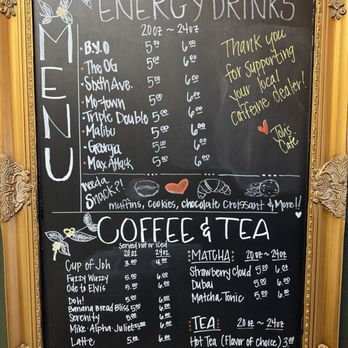 MENU
ENERGY DRINKS
20oz ~ 24oz
B.Y.O 5.00 6.00
The OG 5.00 6.00
Sixth Ave. 5.00 6.00
Mo-town 5.00 6.00
Triple Double 5.00 6.00
Malibu 5.00 6.00
Georgia 5.00 6.00
Max Attack 5.00 6.00
Thank you
for supporting
your local
caffeine dealer!
Johs
Café
need a
Snack?!
muffins, cookies, chocolate Croissant & More!!
COFFEE & TEA
Served hot or iced
20oz 24oz
Cup of Joh 3.00 4.00
Fuzzy Wuzzy 5.00 6.00
Ode to Elvis 5.00 6.00
Doh! 5.00 6.00
Banana Bread Bliss 5.00 6.00
Serenity 5.00 6.00
Mike-Alpha-Juliet 5.00 6.00
Latte
MATCHA: 20oz ~ 24oz
Strawberry Cloud 5.00 6.00
Dubai 5.00 6.00
Matcha Tonic 5.00 6.00
TEA: 20oz ~ 24oz
Hot Tea (Flavor of Choice) 3.00